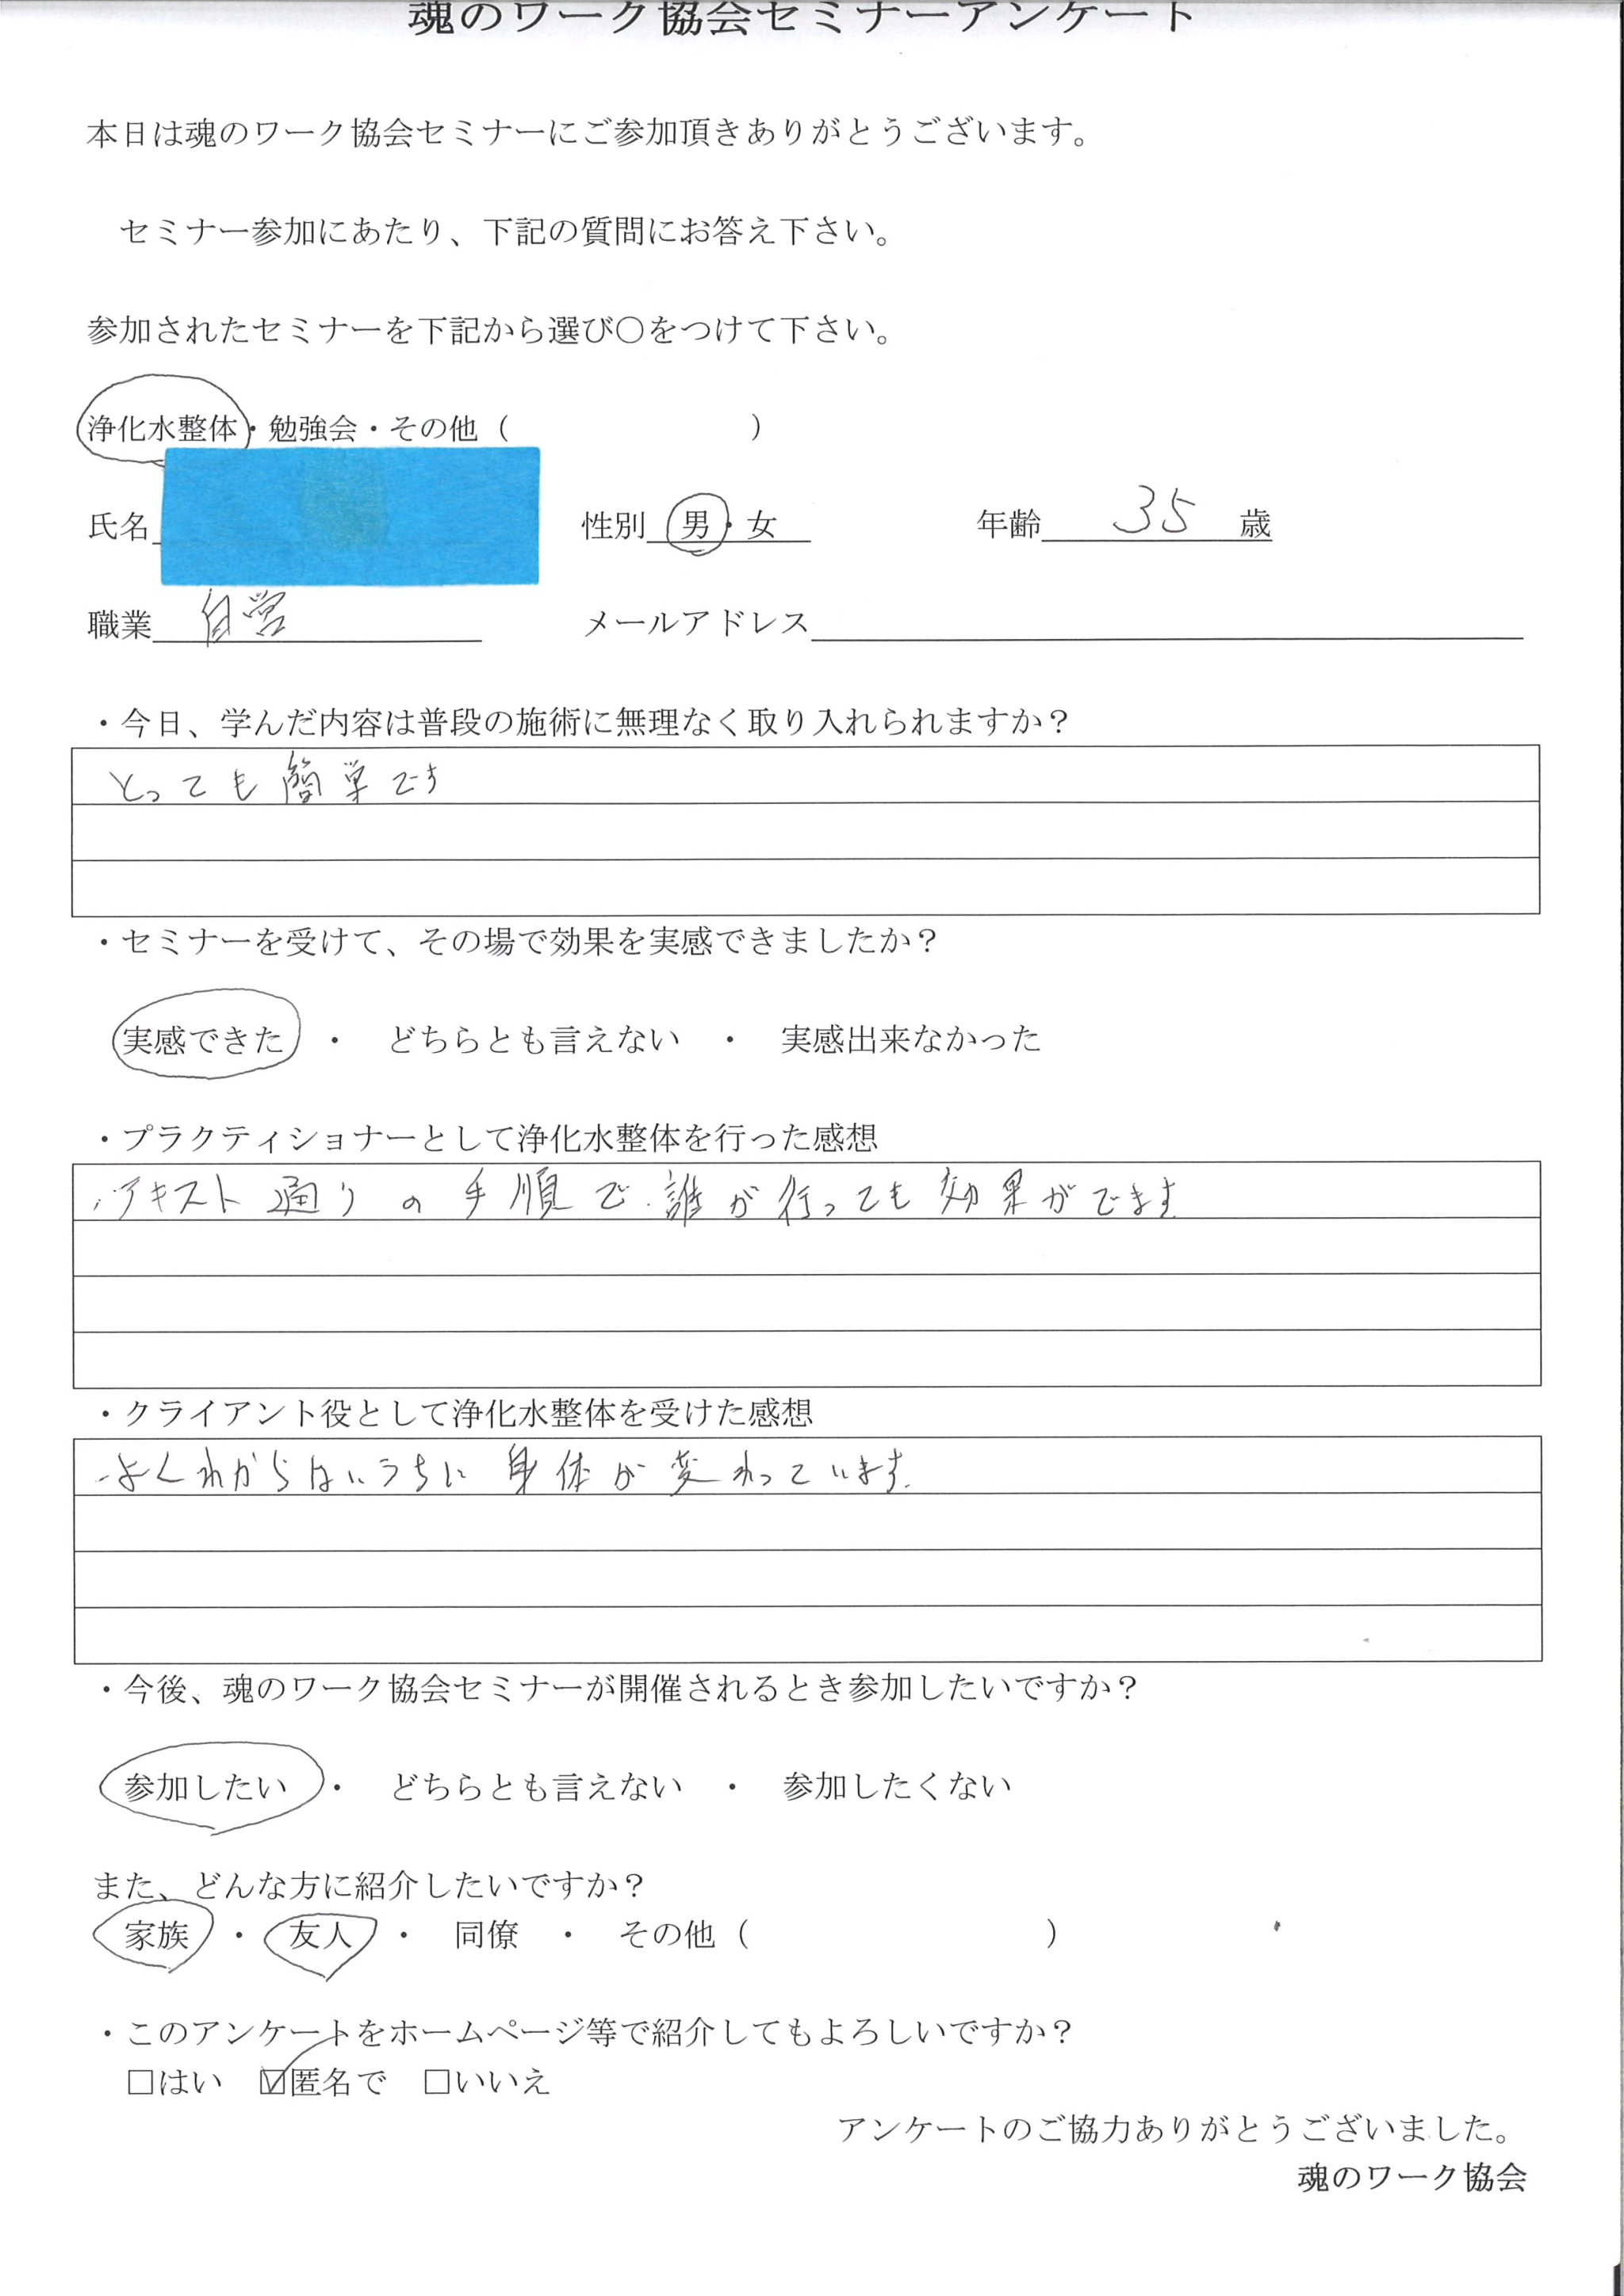 魂のワーク協会セミナーアンケート
本日は魂のワーク協会セミナーにご参加頂きありがとうございます。
セミナー参加にあたり、下記の質問にお答え下さい。
参加されたセミナーを下記から選び〇をつけて下さい。
浄化水整体・勉強会・その他（　　　　　　　）
氏名　性別 男・女　年齢 35 歳
職業 自営　メールアドレス
・今日、学んだ内容は普段の施術に無理なく取り入れられますか？
とっても簡単です
・セミナーを受けて、その場で効果を実感できましたか？
実感できた　・　どちらとも言えない　・　実感出来なかった
・プラクティショナーとして浄化水整体を行った感想
・テキスト通りの手順で、誰が行っても効果がでます
・クライアント役として浄化水整体を受けた感想
・よくわからないうちに身体が変わっています。
・今後、魂のワーク協会セミナーが開催されるとき参加したいですか？
参加したい　・　どちらとも言えない　・　参加したくない
また、どんな方に紹介したいですか？
家族　・　友人　・　同僚　・　その他（　　　　　　　　　）
・このアンケートをホームページ等で紹介してもよろしいですか？
□はい　☑匿名で　□いいえ
アンケートのご協力ありがとうございました。
魂のワーク協会